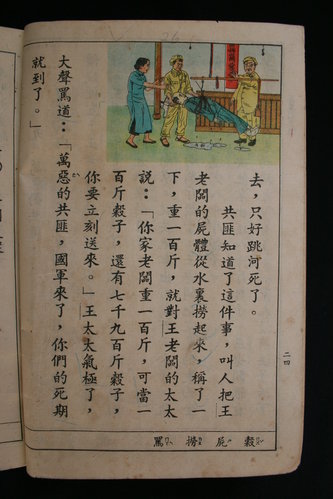 去，只好跳河死了。
共匪知道了這件事，叫人把王
老闆的屍體從水裏撈起來，稱了一
下，重一百斤，就對王老闆的太太
說：「你家老闆重一百斤，可當一
百斤穀子，還有七千九百斤穀子，
你要立刻送來。」王太太氣極了，
大聲罵道：「萬惡的共匪，國軍來了，你們的死期
就到了。」
二四
穀 屍 撈 罵